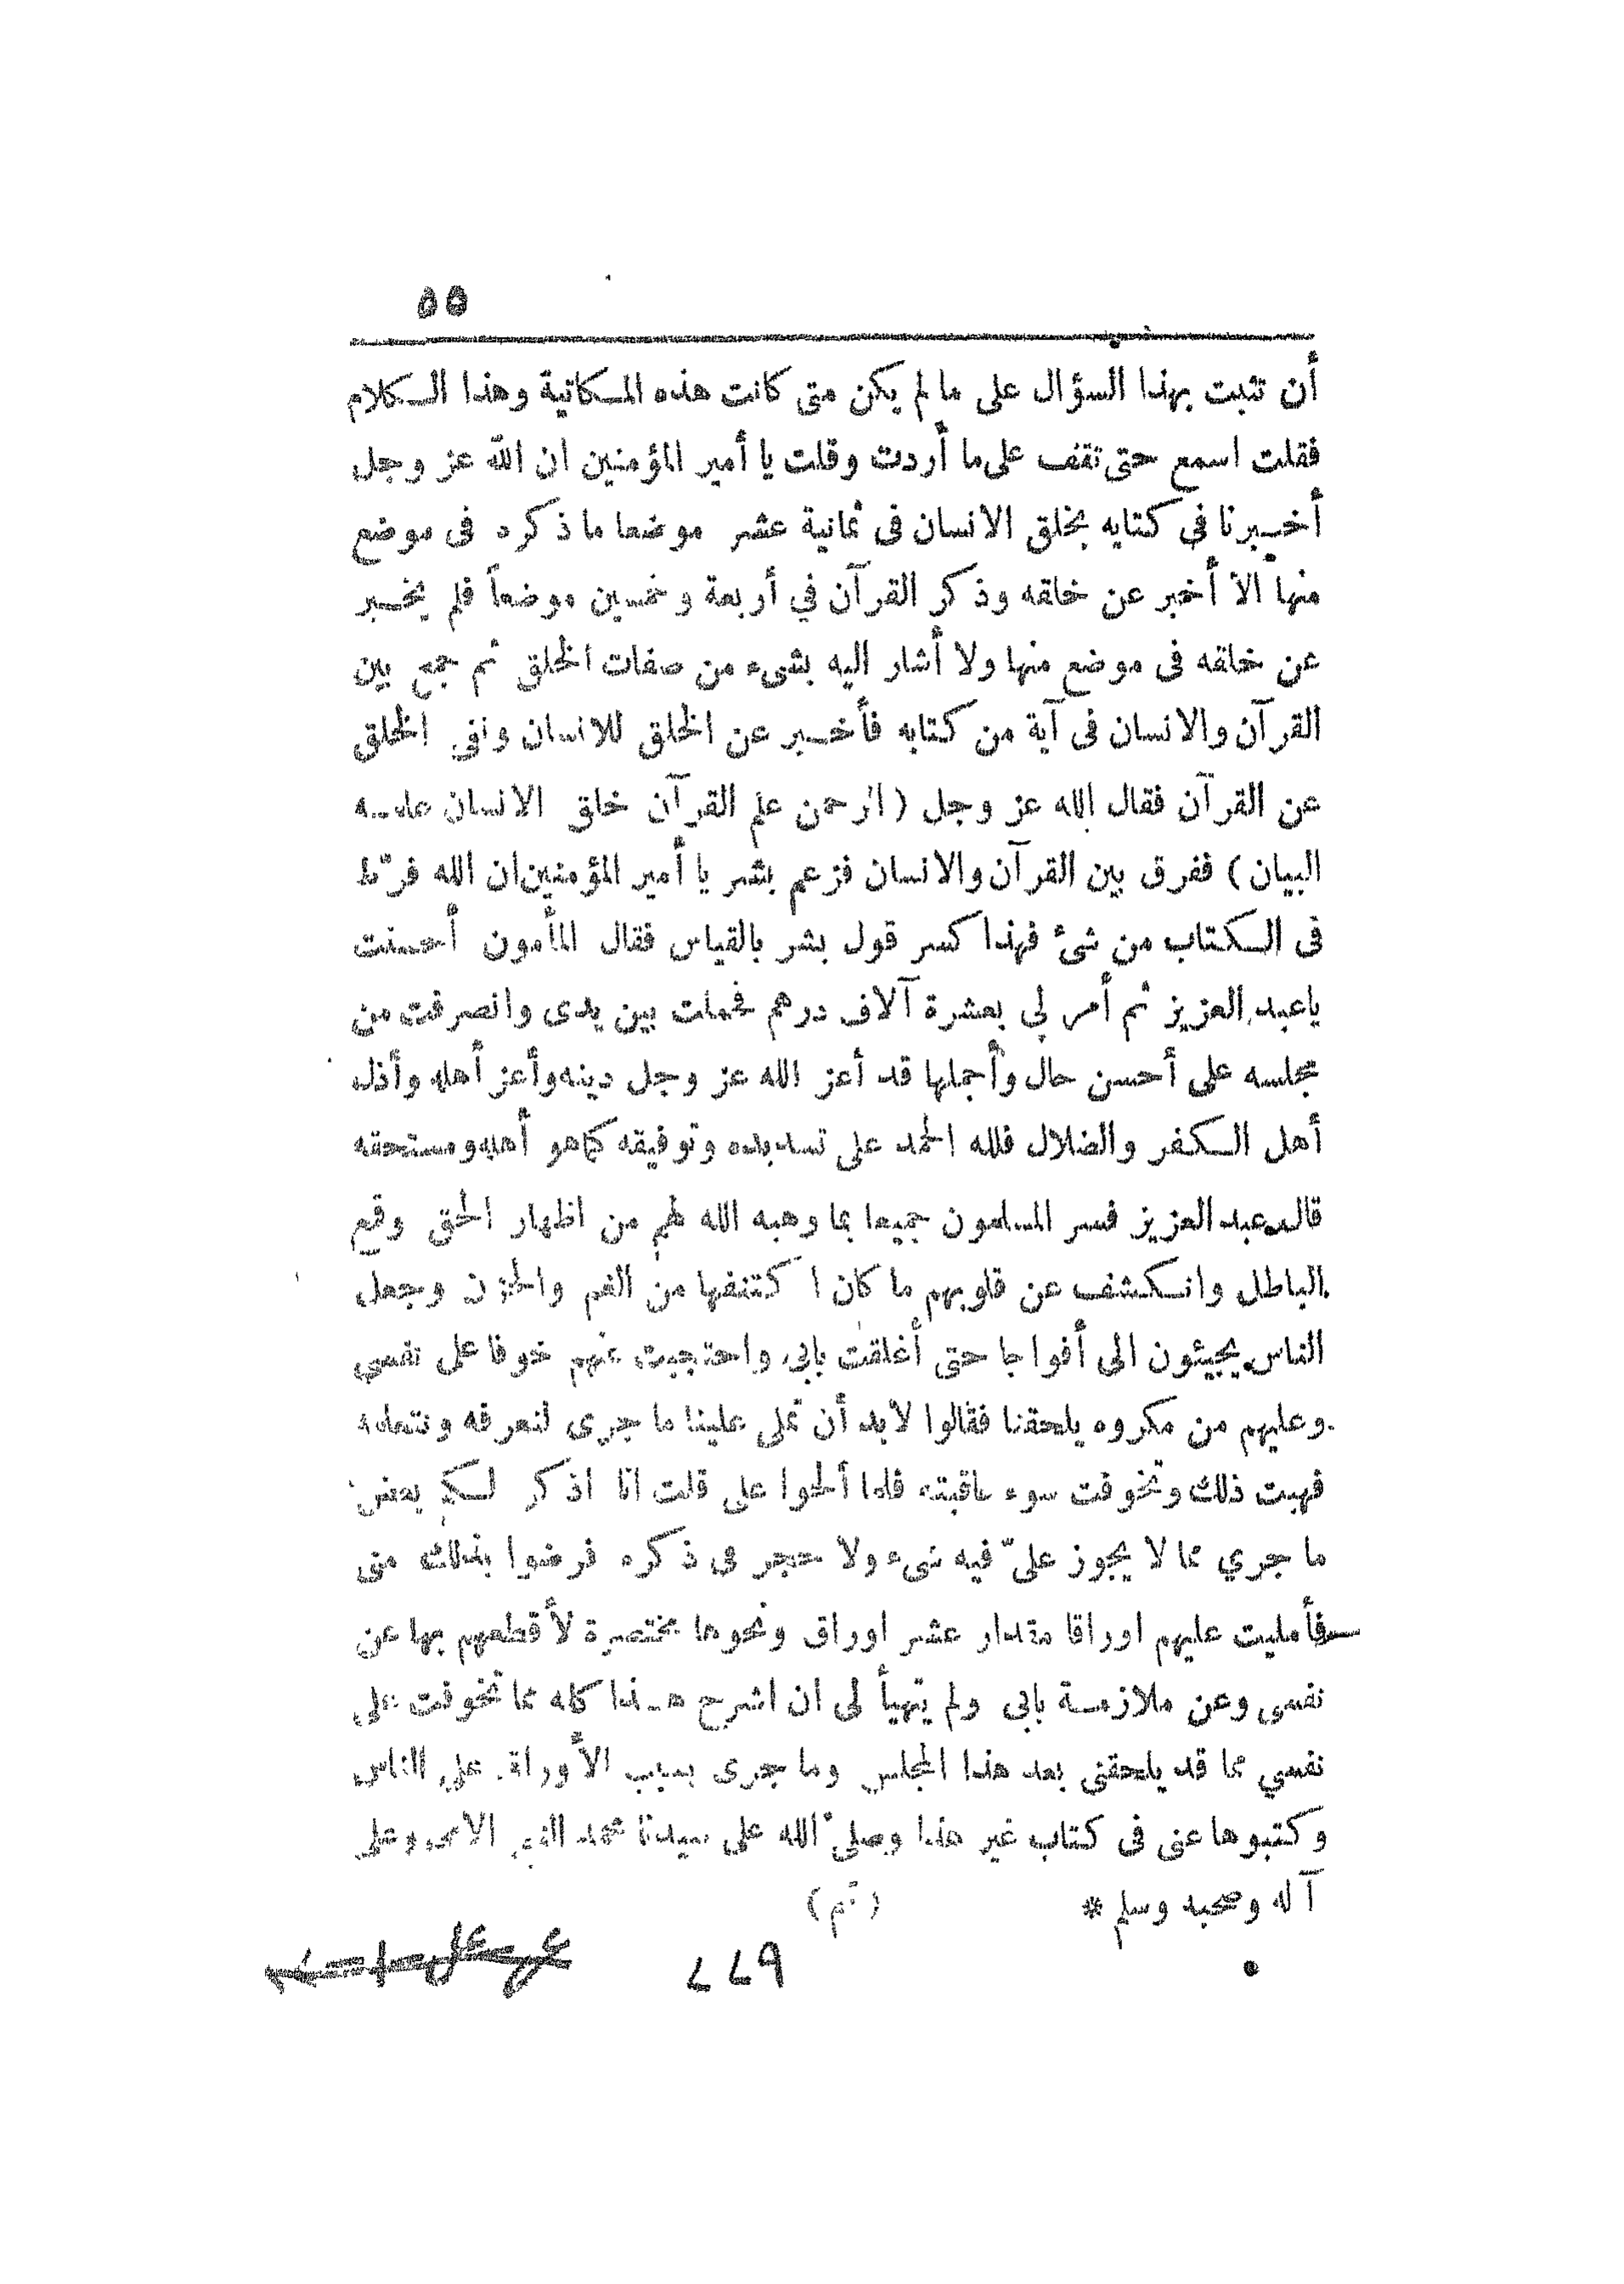 ٥٥
أن تثبت بهذا السؤال على ما لم يكن متى كانت هذه المكاتبة وهذا الكلام
فقلت اسمع حتى تقف على ما أردت وقلت يا أمير المؤمنين ان الله عز وجل
أخبرنا في كتابه بخلق الانسان فى ثمانية عشر موضعا ما ذكره فى موضع
منها الا أخبر عن خلقه وذكر القرآن في أربعة وخمسين موضعاً فلم يخبر
عن خلقه فى موضع منها ولا أشار اليه بشىء من صفات الخلق ثم جمع بين
القرآن والانسان فى آية من كتابه فأخبر عن الخلق للانسان ونفى الخلق
عن القرآن فقال الله عز وجل (الرحمن علم القرآن خلق الانسان علمه
البيان) ففرق بين القرآن والانسان فزعم بشر يا أمير المؤمنين ان الله فرّط
فى الكتاب من شئ فهذا كسر قول بشر بالقياس فقال المأمون أحسنت
ياعبد العزيز ثم أمر لي بعشرة آلاف درهم فحملت بين يدى وانصرفت من
مجلسه على أحسن حال وأجملها قد أعز الله عز وجل دينه وأعز أهله وأذل
أهل الكفر والضلال فلله الحمد على تسديده وتوفيقه كما هو أهله ومستحقه
قال عبد العزيز فسر المسلمون جميعا بما وهبه الله لهم من اظهار الحق وقمع
الباطل وانكشف عن قلوبهم ما كان اكتنفها من الغم والحزن وجعل
الناس يجيئون الى أفواجا حتى أغلقت بابي واحتجبت عنهم خوفا على نفسي
وعليهم من مكروه يلحقنا فقالوا لابد أن تملى علينا ما جرى لنعرفه ونتعلمه
فهبت ذلك وتخوفت سوء عاقبته فلما ألحوا على قلت انا اذكر لكم بعض
ما جري مما لا يجوز علىّ فيه شىء ولا حجر في ذكره فرضوا بذلك منى
فأمليت عليهم اوراقا مقدار عشر اوراق ونحوها مختصرة لأقطعهم بها عن
نفسى وعن ملازمة بابي ولم يتهيأ لى ان اشرح هذا كله مما تخوفت على
نفسي مما قد يلحقنى بعد هذا المجلس وما جرى بسبب الأوراق على الناس
وكتبوها عنى فى كتاب غير هذا وصلى الله على سيدنا محمد النبي الامى وعلى
آله وصحبه وسلم *
(تم)